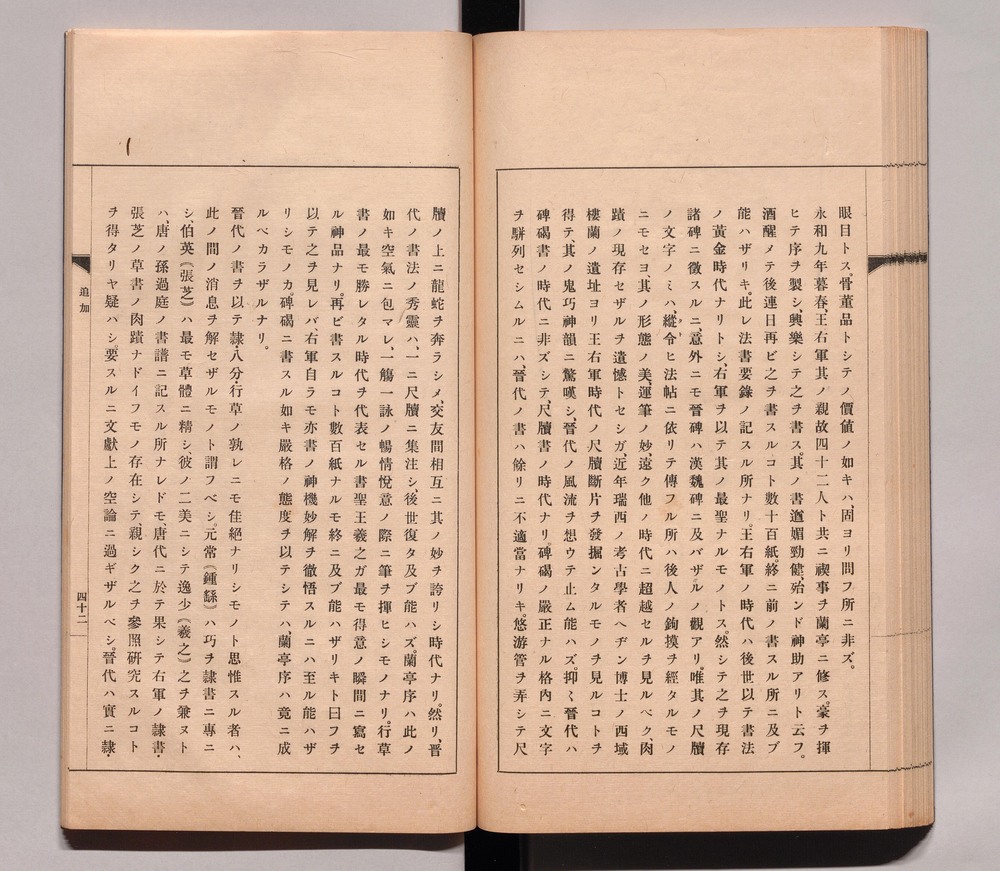 眼目トス。骨董品トシテノ價値ノ如キハ固ヨリ問フ所ニ非ズ。
永和九年暮春、王右軍其ノ親故四十二人ト共ニ禊事ヲ蘭亭ニ修ス。豪ヲ揮
ヒテ序ヲ製シ、興樂シテ之ヲ書ス。其ノ書遒媚勁健、殆ンド神助アリト云フ。
酒醒メテ後連日再ビ之ヲ書スルコト數十百紙、終ニ前ノ書スル所ニ及ブ
能ハザリキ。此レ法書要錄ノ記スル所ナリ。王右軍ノ時代ハ後世以テ書法
ノ黃金時代ナリトシ、右軍ヲ以テ其ノ最聖ナルモノトス。然シテ之ヲ現存
諸碑ニ徵スルニ、意外ニモ晉碑ハ漢魏碑ニ及バザルノ觀アリ。唯其ノ尺牘
ノ文字ノミハ、縱令ヒ法帖ニ依リテ傳フル所ハ後人ノ鉤摸ヲ經タルモノ
ニモセヨ、其ノ形態ノ美、運筆ノ妙、遠ク他ノ時代ニ超越セルヲ見ルベク、肉
蹟ノ現存セザルヲ遺憾トセシガ、近年瑞西ノ考古學者ヘヂン博士ノ西域
樓蘭ノ遺址ヨリ王右軍時代ノ尺牘斷片ヲ發掘シタルモノヲ見ルコトヲ
得テ、其ノ鬼巧神韻ニ驚嘆シ、晉代ノ風流ヲ想ウテ止ム能ハズ。抑〻晉代ハ
碑碣書ノ時代ニ非ズシテ、尺牘書ノ時代ナリ。碑碣ノ嚴正ナル格內ニ文字
ヲ駢列セシムルニハ、晉代ノ書ハ餘リニ不適當ナリキ。悠游管ヲ弄シテ尺
牘ノ上ニ龍蛇ヲ奔ラシメ、交友間相互ニ其ノ妙ヲ誇リシ時代ナリ。然リ、晉
代ノ書法ノ秀靈ハ、一ニ尺牘ニ集注シ、後世復タ及ブ能ハズ。蘭亭序ハ此ノ
如キ空氣ニ包マレ、一觴一詠ノ暢情悅意ノ際ニ筆ヲ揮ヒシモノナリ。行草
書ノ最モ勝レタル時代ヲ代表セル書聖王羲之ガ最モ得意ノ瞬間ニ寫セ
ル神品ナリ。再ビ書スルコト數百紙ナルモ終ニ及ブ能ハザリキト曰フヲ
以テ之ヲ見レバ、右軍自ラモ亦書ノ神機妙解ヲ徹悟スルニハ至ル能ハザ
リシモノカ。碑碣ニ書スル如キ嚴格ノ態度ヲ以テシテハ、蘭亭序ハ竟ニ成
ルベカラザルナリ。
晉代ノ書ヲ以テ隷・八分・行草ノ孰レニモ佳絕ナリシモノト思惟スル者ハ、
此ノ間ノ消息ヲ解セザルモノト謂フベシ。元常(鍾繇)ハ巧ヲ隷書ニ專ニ
シ、伯英(張芝)ハ最モ草體ニ精シ、彼ノ二美ニシテ逸少(羲之)之ヲ兼ヌト
ハ、唐ノ孫過庭ノ書譜ニ記スル所ナレドモ、唐代ニ於テ果シテ右軍ノ隷書・
張芝ノ草書ノ肉蹟ナドイフモノ存在シテ、親シク之ヲ參照硏究スルコト
ヲ得タリヤ疑ハシ。要スルニ文獻上ノ空論ニ過ギザルベシ。晉代ハ實ニ隷・
追加
四十二